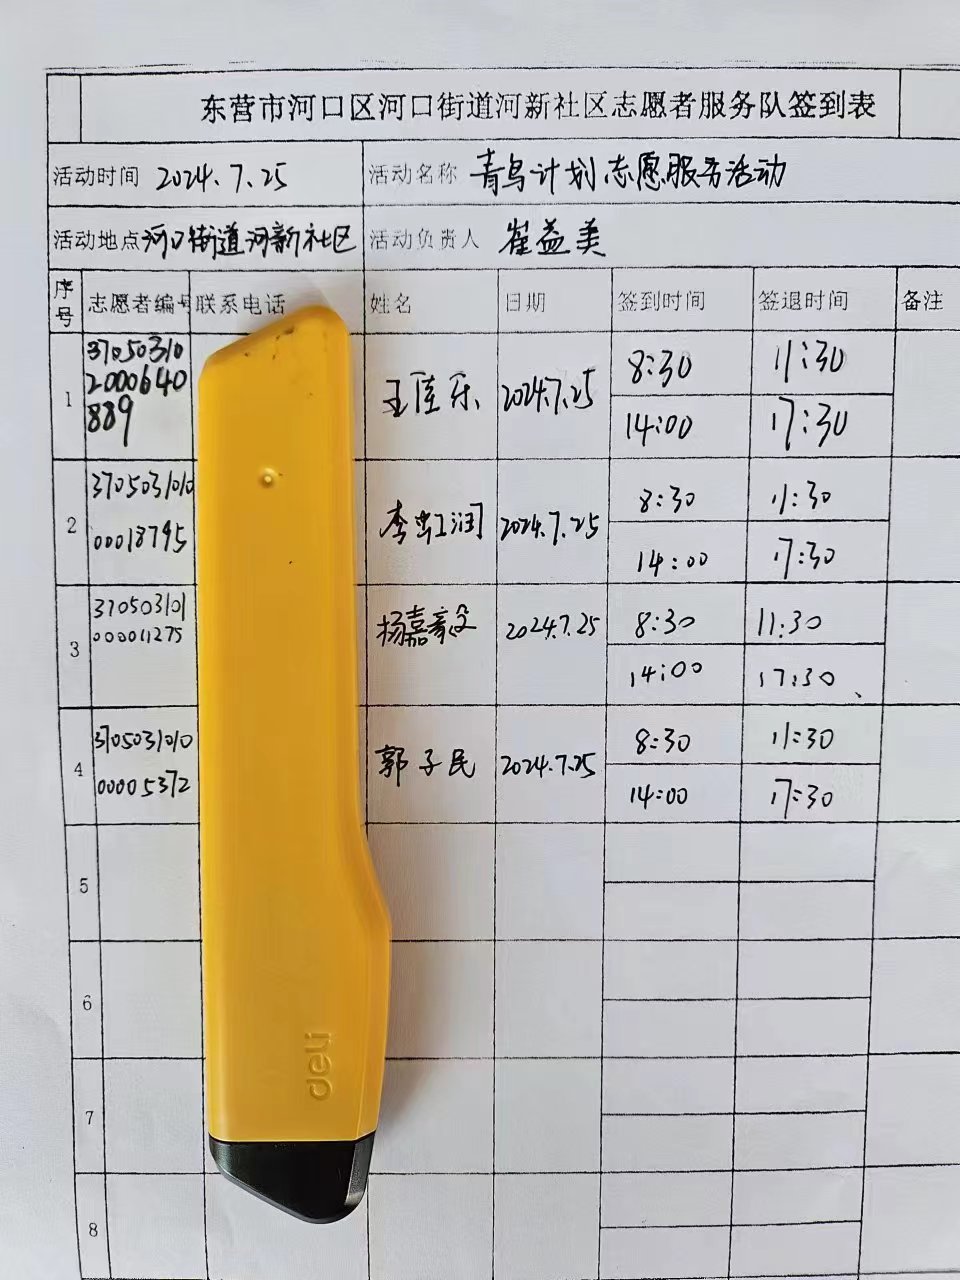 东营市河口区河口街道河新社区志愿者服务队签到表
活动时间 2024.7.25 活动名称 青鸟计划志愿服务活动
活动地点 河口街道河新社区 活动负责人 崔益美
序号 志愿者编号 联系电话 姓名 日期 签到时间 签退时间 备注
1 370503102000640889 王佳乐 2024.7.25 8:30 11:30
14:00 17:30
2 370503101000018795 李虹润 2024.7.25 8:30 11:30
14:00 17:30
3 370503101000011275 杨嘉毅 2024.7.25 8:30 11:30
14:00 17:30
4 370503101000005372 郭子民 2024.7.25 8:30 11:30
14:00 17:30
5
6
deli
7
8